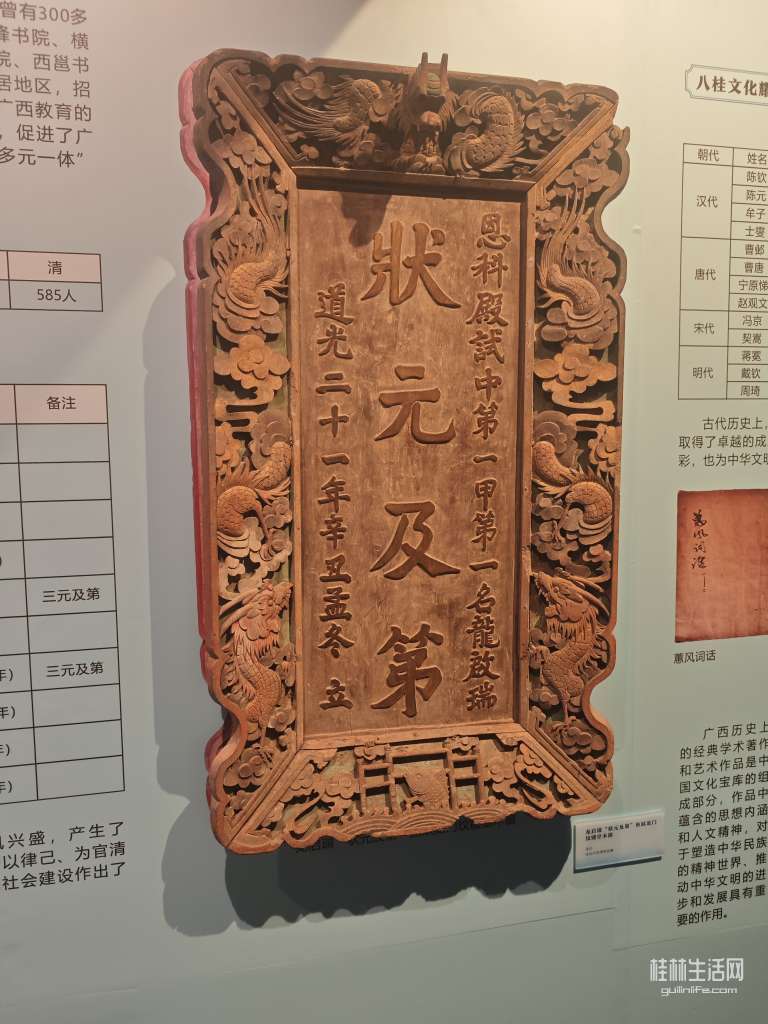 曾有300多
书院、横
院、西邕书
居地区，招
广西教育的
，促进了广
多元一体”
清
585人
备注
三元及第
三元及第
年）
年）
兴盛，产生了
以律己、为官清
社会建设作出了
恩科殿試中第一甲第一名龍啟瑞
狀元及第
道光二十一年辛丑孟冬 立
龙启瑞“状元及第”
八桂文化耀
朝代 姓名
汉代 陈钦
陈元
牟子
士燮
唐代 曹邺
曹唐
宁原悌
赵观文
宋代 冯京
契嵩
明代 蒋冕
戴钦
周琦
古代历史上，
取得了卓越的成
彩，也为中华文明
蕙风词话
蕙风词话
广西历史上
的经典学术著作
和艺术作品是中
国文化宝库的组
成部分，作品中
蕴含的思想内涵
和人文精神，对
于塑造中华民族
的精神世界、推
动中华文明的进
步和发展具有重
要的作用。
桂林生活网
guilinlife.com